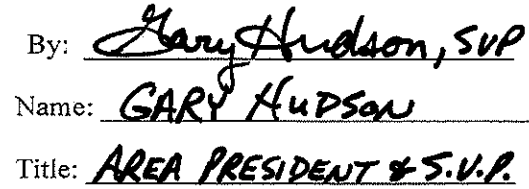 By: Gary Hudson, SVP
Name: GARY HUDSON
Title: AREA PRESIDENT & S.V.P.